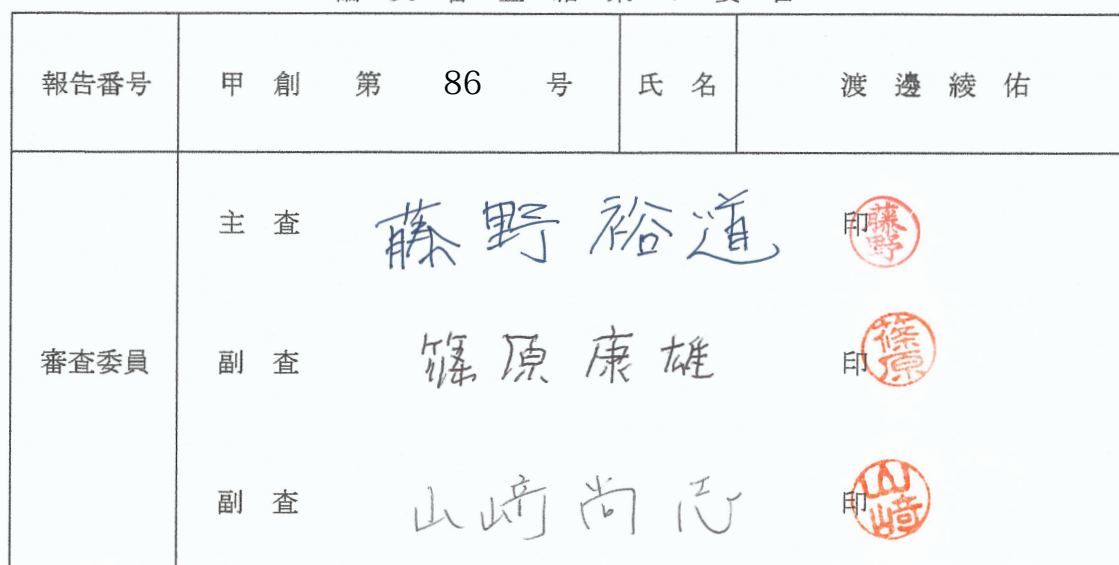 報告番号 甲 創 第 86 号 氏 名 渡 邊 綾 佑
主 査 藤野裕道 印 藤野
審査委員 副 査 篠原康雄 印 篠原
副 査 山﨑尚志 印 山﨑